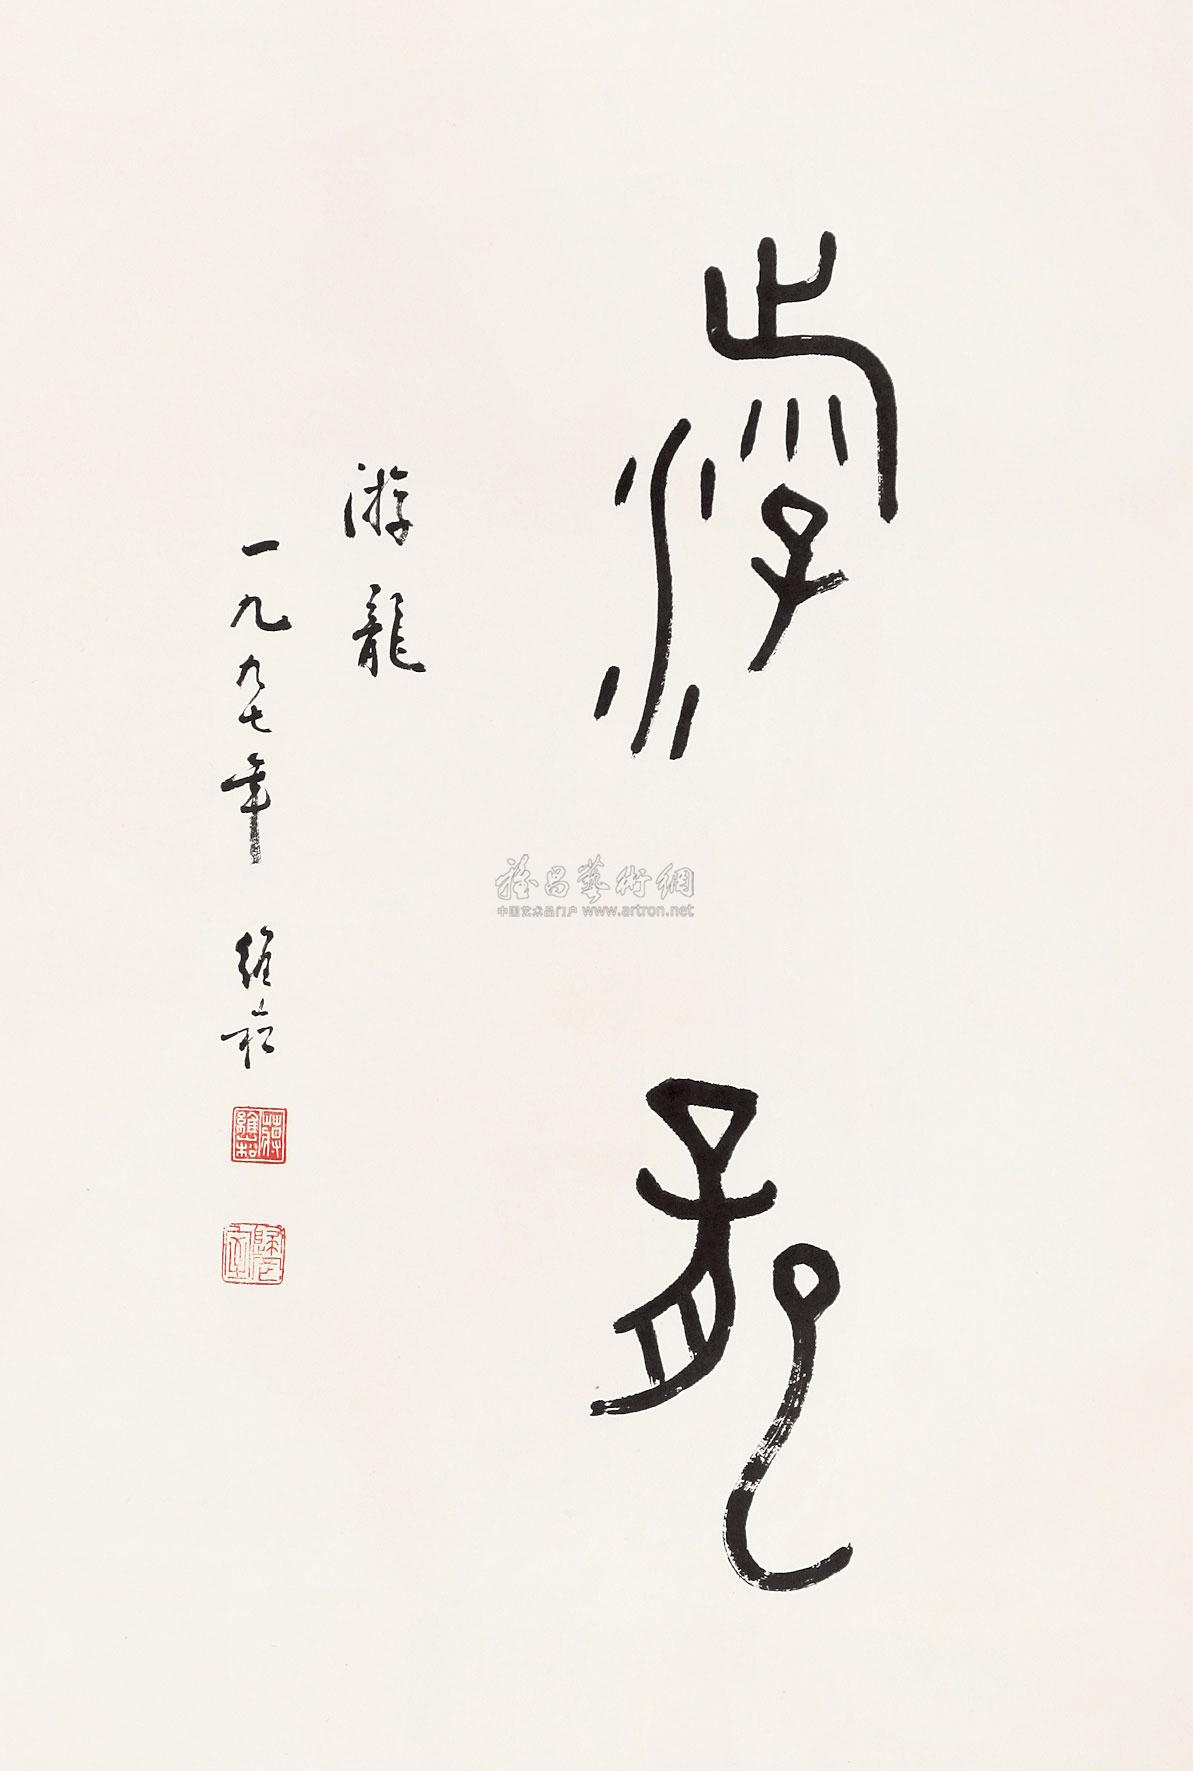 游龍
游龍
一九九七年 維崧
蔣維松
雅昌藝術網
中国艺术品门户 www.artron.net